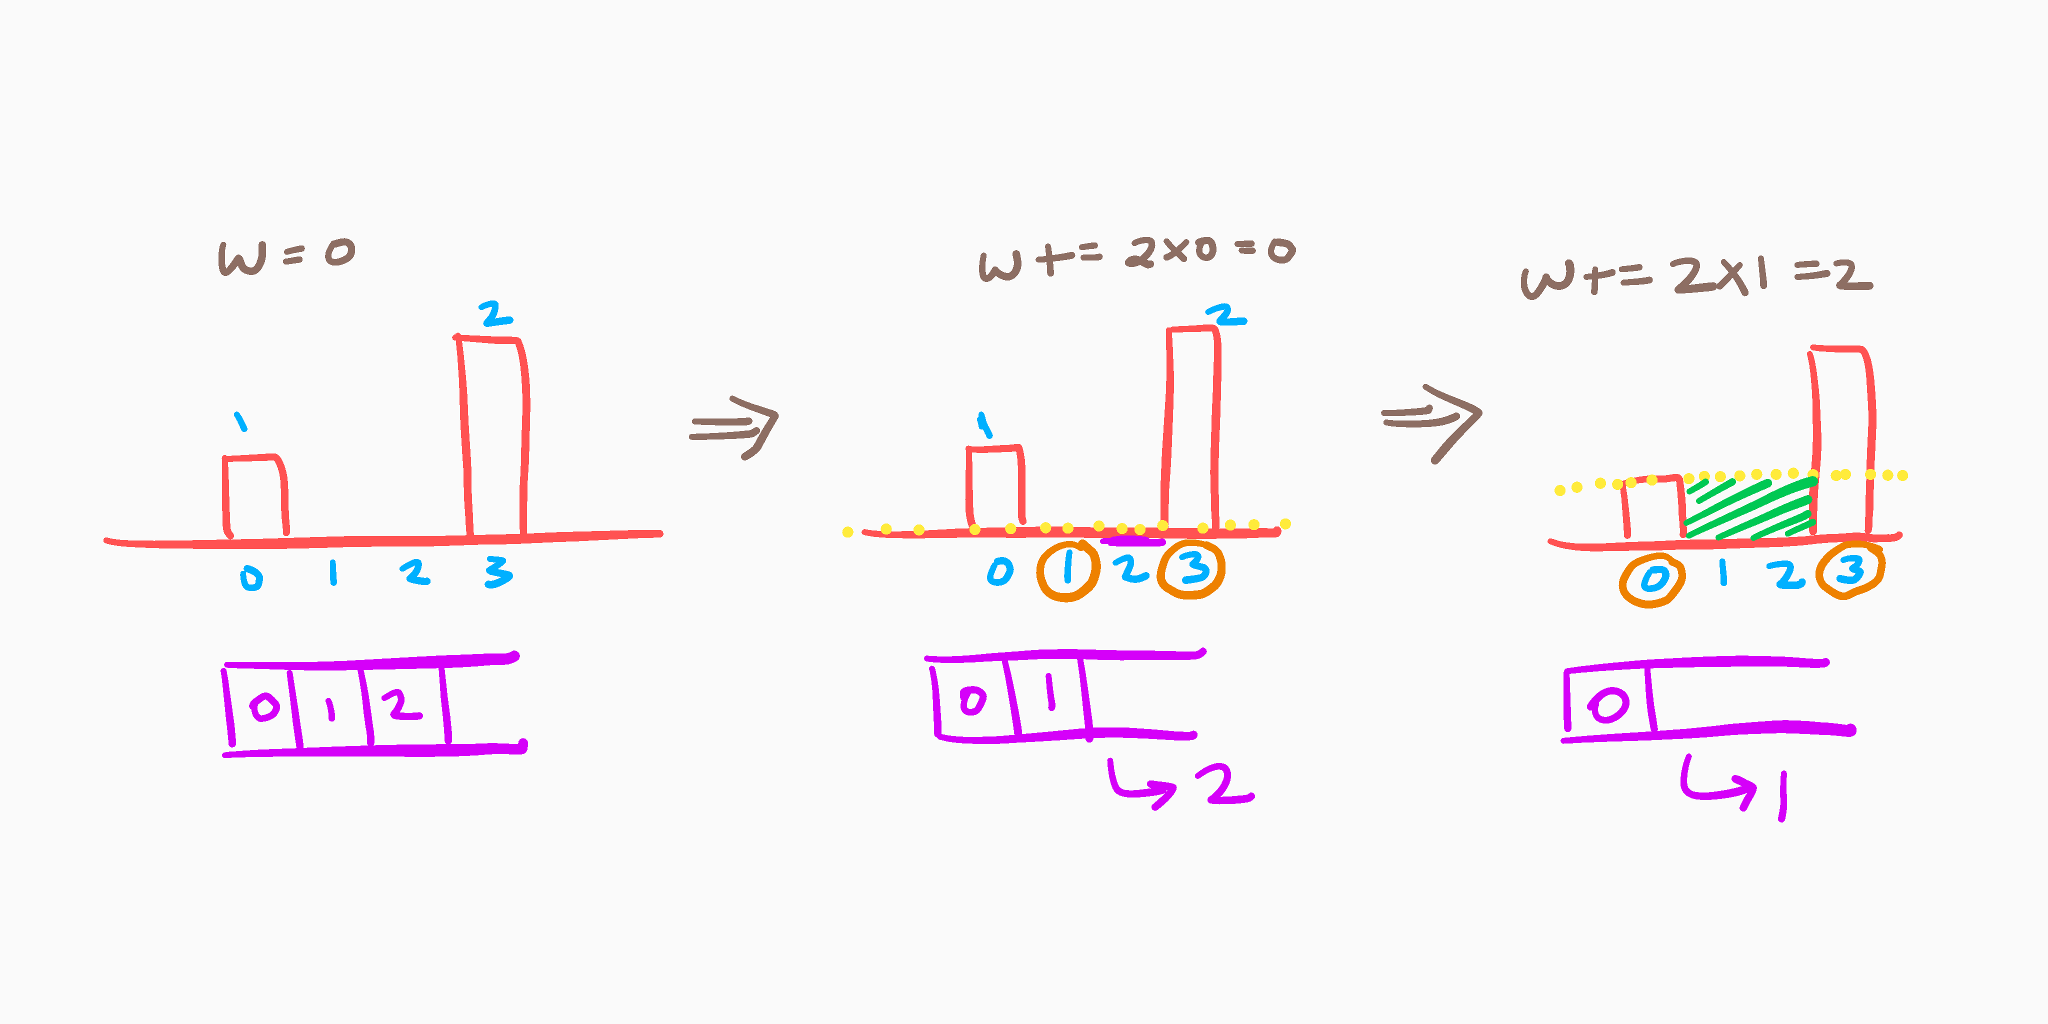 w = 0
2
1
0 1 2 3
0 1 2
w += 2x0 = 0
2
1
0 1 2 3
0 1
2
w += 2x1 = 2
0 1 2 3
0
1